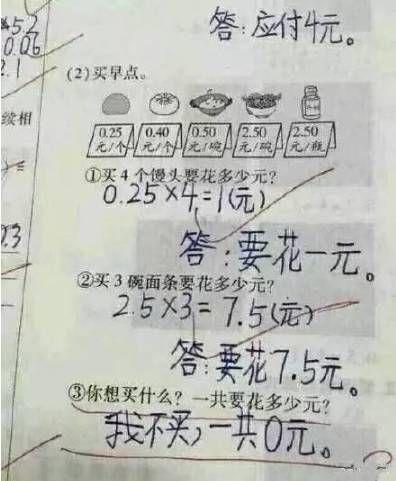 答:应付4元。
5.2
0.06
2.1
(2)买早点。
0.25 元/个 0.40 元/个 0.50 元/碗 2.50 元/碗 2.50 元/瓶
续相
①买4个馒头要花多少元?
0.25×4=1(元)
答:要花一元。
②买3碗面条要花多少元?
2.5×3=7.5(元)
答:要花7.5元。
③你想买什么?一共要花多少元?
我不买,一共0元。